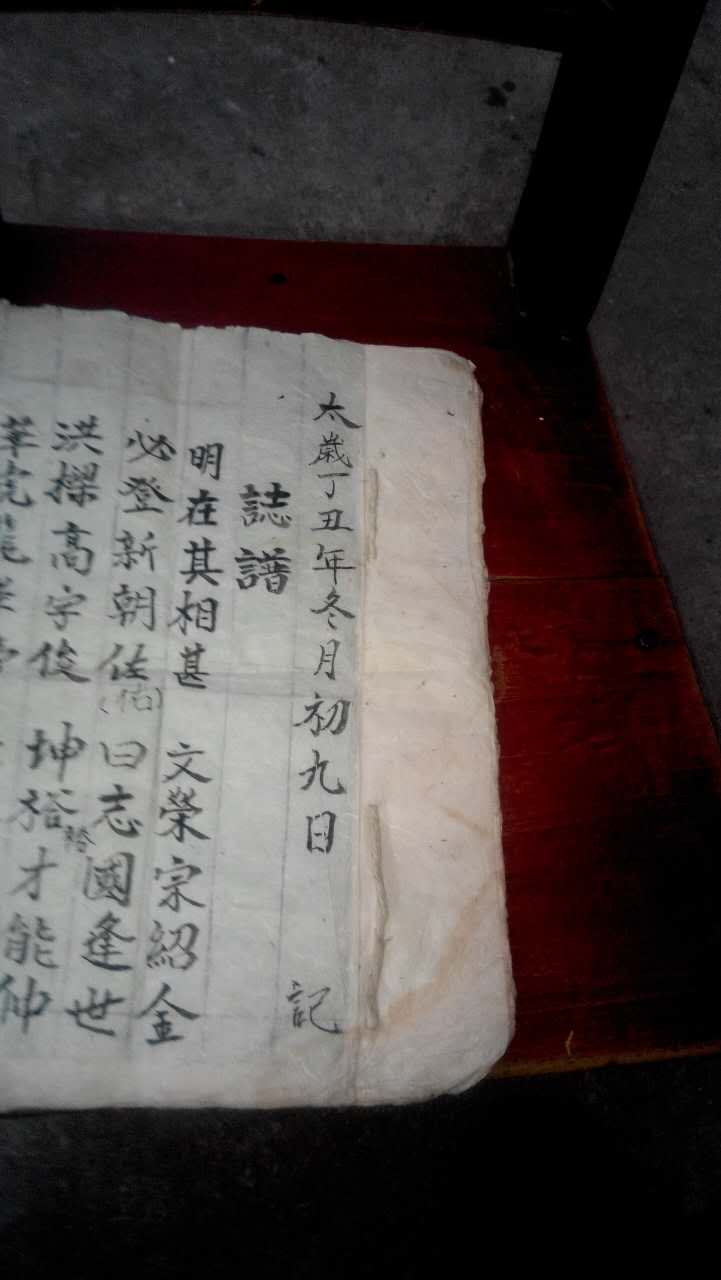 太歲丁丑年冬月初九日 記
誌譜
明在其相甚 文榮宗紹金
必登新朝佐(佑) 曰志國逢世
洪樑高字俊 坤裕 才能仲
華